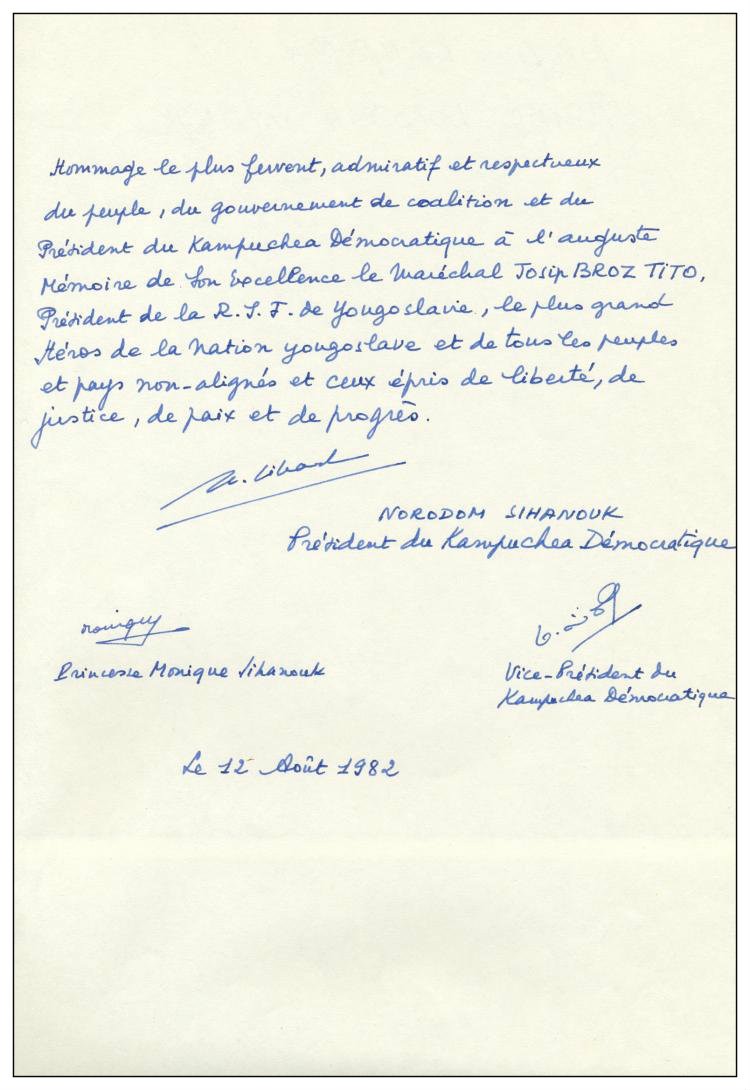 Hommage le plus fervent, admiratif et respectueux
du peuple, du gouvernement de coalition et du
Président du Kampuchea Démocratique à l'auguste
Mémoire de Son Excellence le Maréchal Josip BROZ TITO,
Président de la R.S.F. de Yougoslavie, le plus grand
Héros de la Nation yougoslave et de tous les peuples
et pays non-alignés et ceux épris de liberté, de
justice, de paix et de progrès.
NORODOM SIHANOUK
Président du Kampuchea Démocratique
Monique
Princesse Monique Sihanouk
Vice-Président du
Kampuchea Démocratique
Le 12 Août 1982